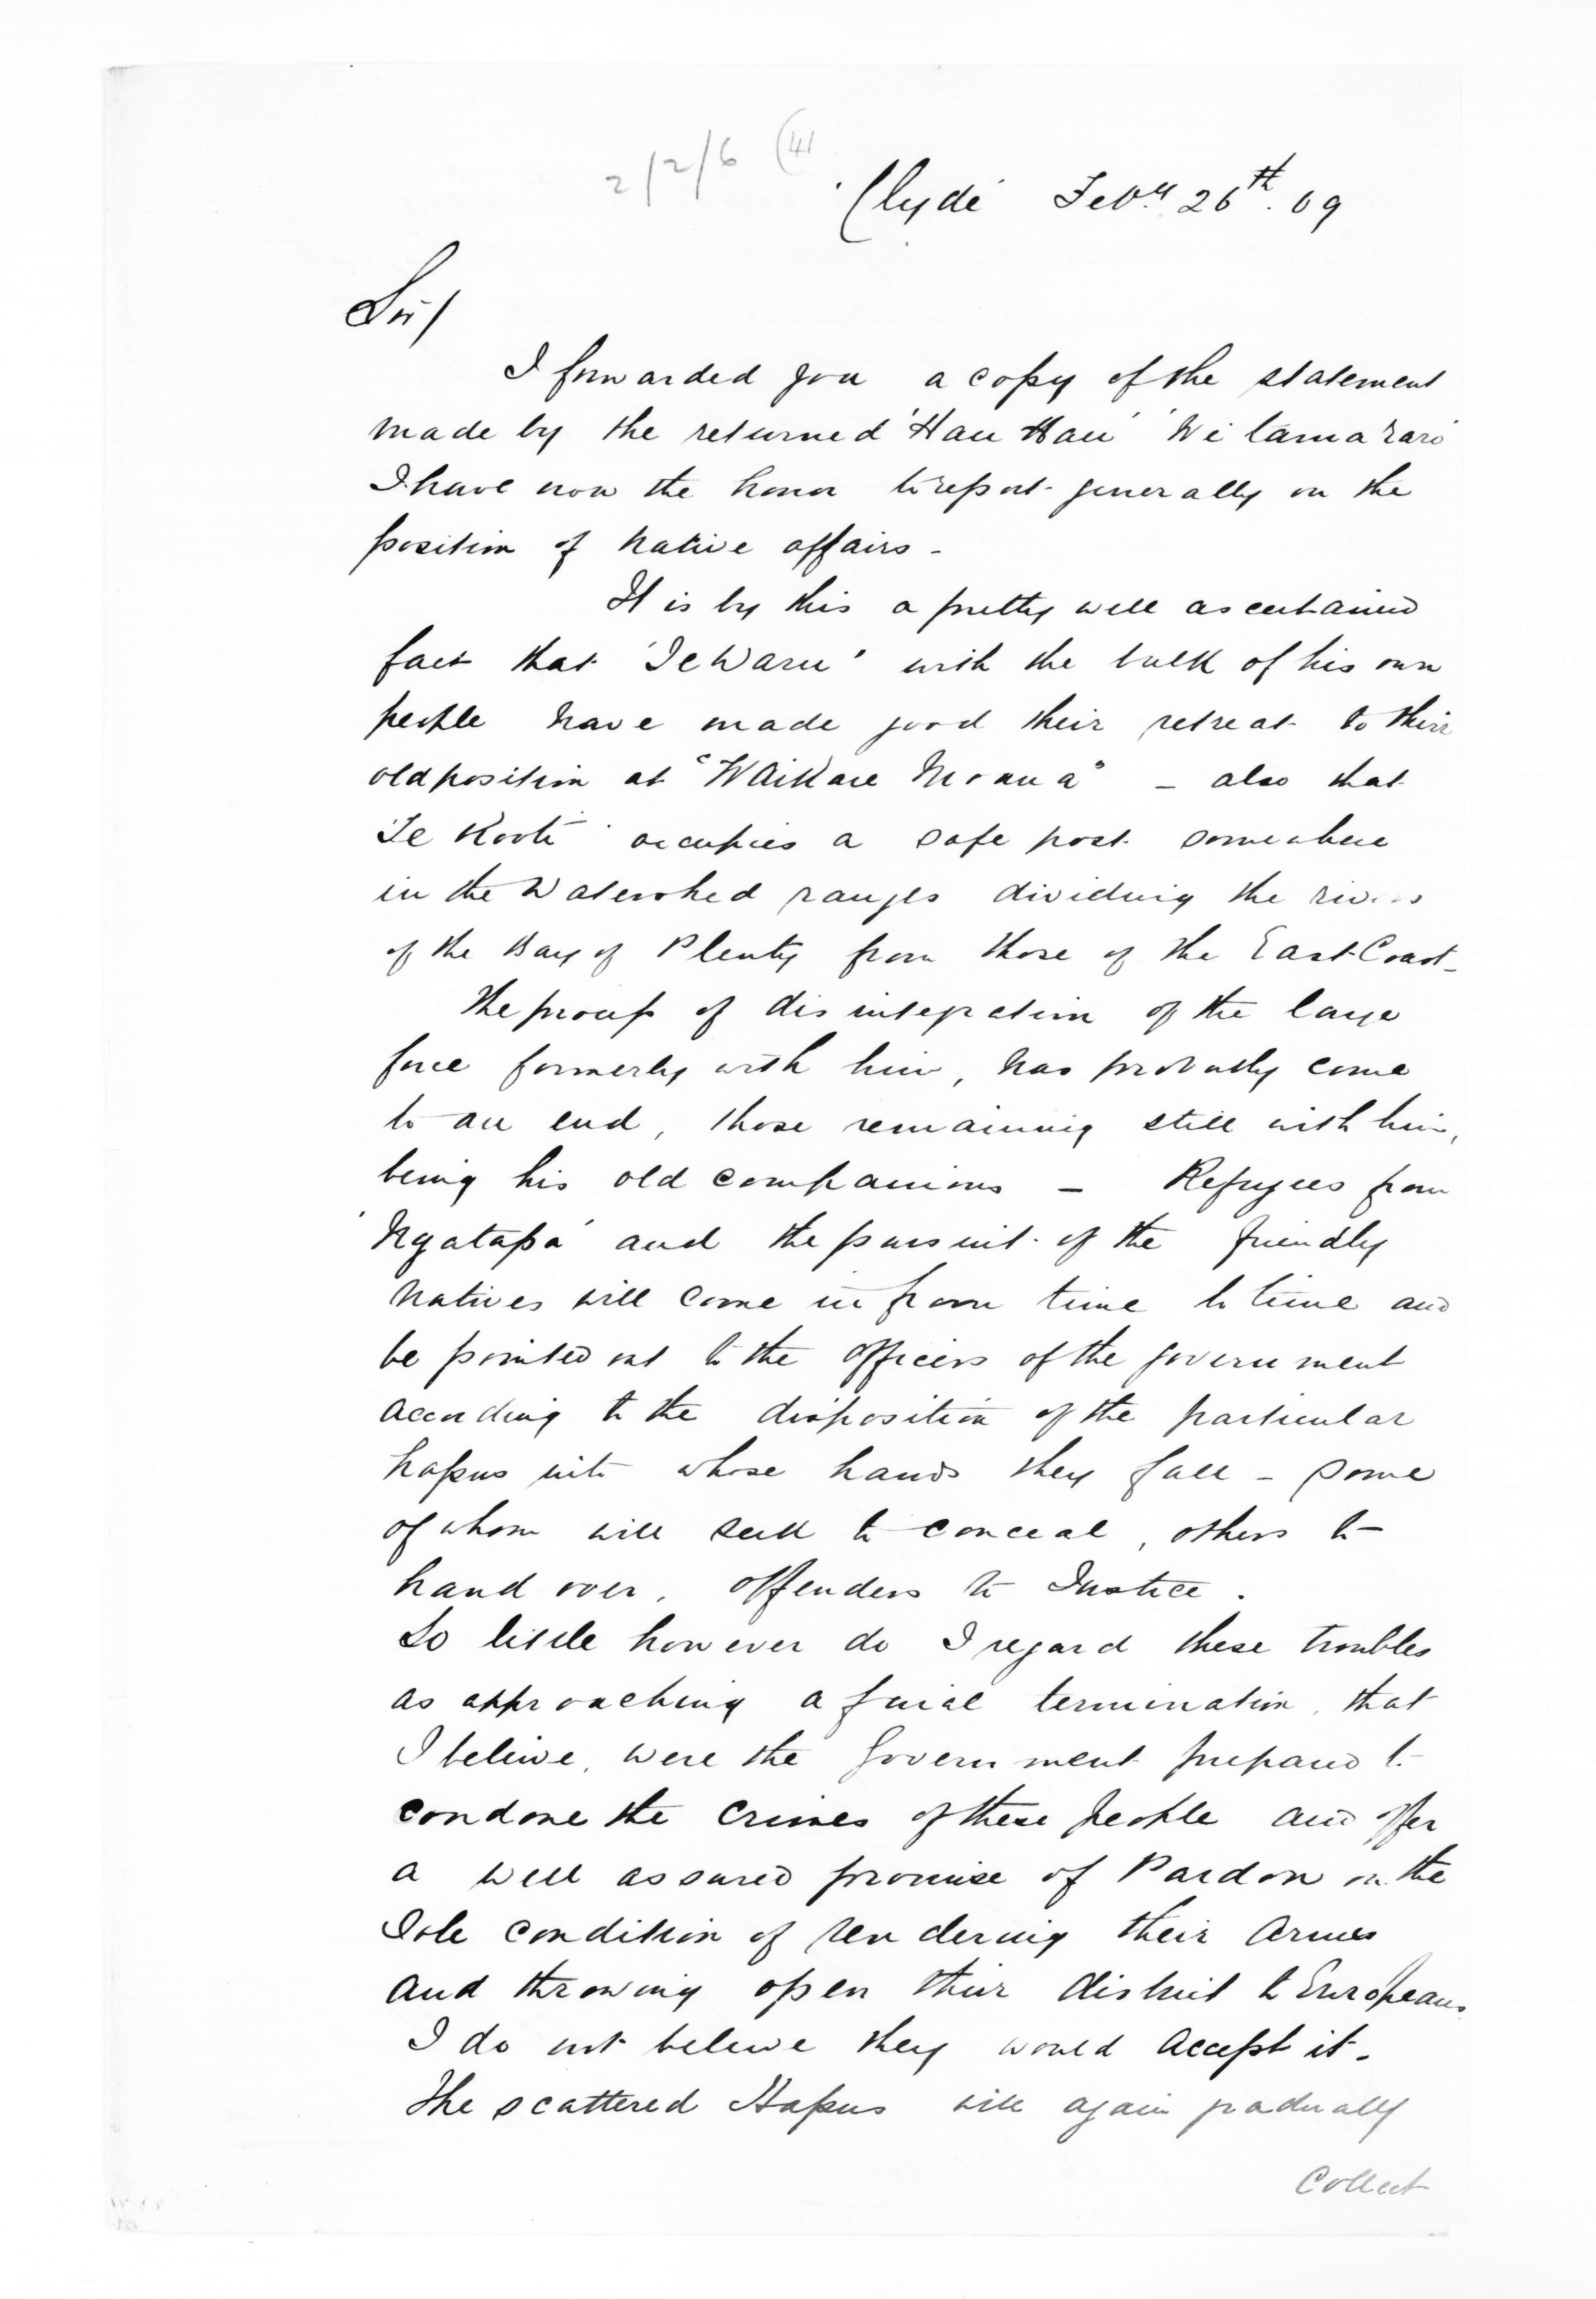 2/2/6 (41
'Clyde' Feby 26th. 69
Sir/
I forwarded you a copy of the statement
made by the returned 'Hau Hau' 'Wi tama rare'
I have now the honor to report generally on the
position of Native affairs -
It is by this a pretty well ascertained
fact that 'Te Waru' with the bulk of his own
people have made good their retreat to their
old position at "Waikare Moana" - also that
'Te Kooti' occupies a safe post somewhere
in the Watershed ranges dividing the rivers
of the Bay of Plenty from those of the East Coast -
The process of disintegration of the large
force formerly with him, has probably come
to an end, those remaining still with him,
being his old companions - Refugees from
'Ngatapa' and the pursuit of the friendly
Natives will come in from time to time and
be pointed out to the officers of the government
according to the disposition of the particular
hapus into whose hands they fall - some
of whom will seek to conceal, others to
hand over, offenders to Justice.
So little however do I regard these troubles
as approaching a final termination, that
I believe, were the Government prepared to
condone the crimes of these people and offer
a well assured promise of Pardon on the
Sole condition of rendering their Arms
and throwing open their district to Europeans
I do not believe they would accept it.
The scattered Hapus will again gradually
Collect